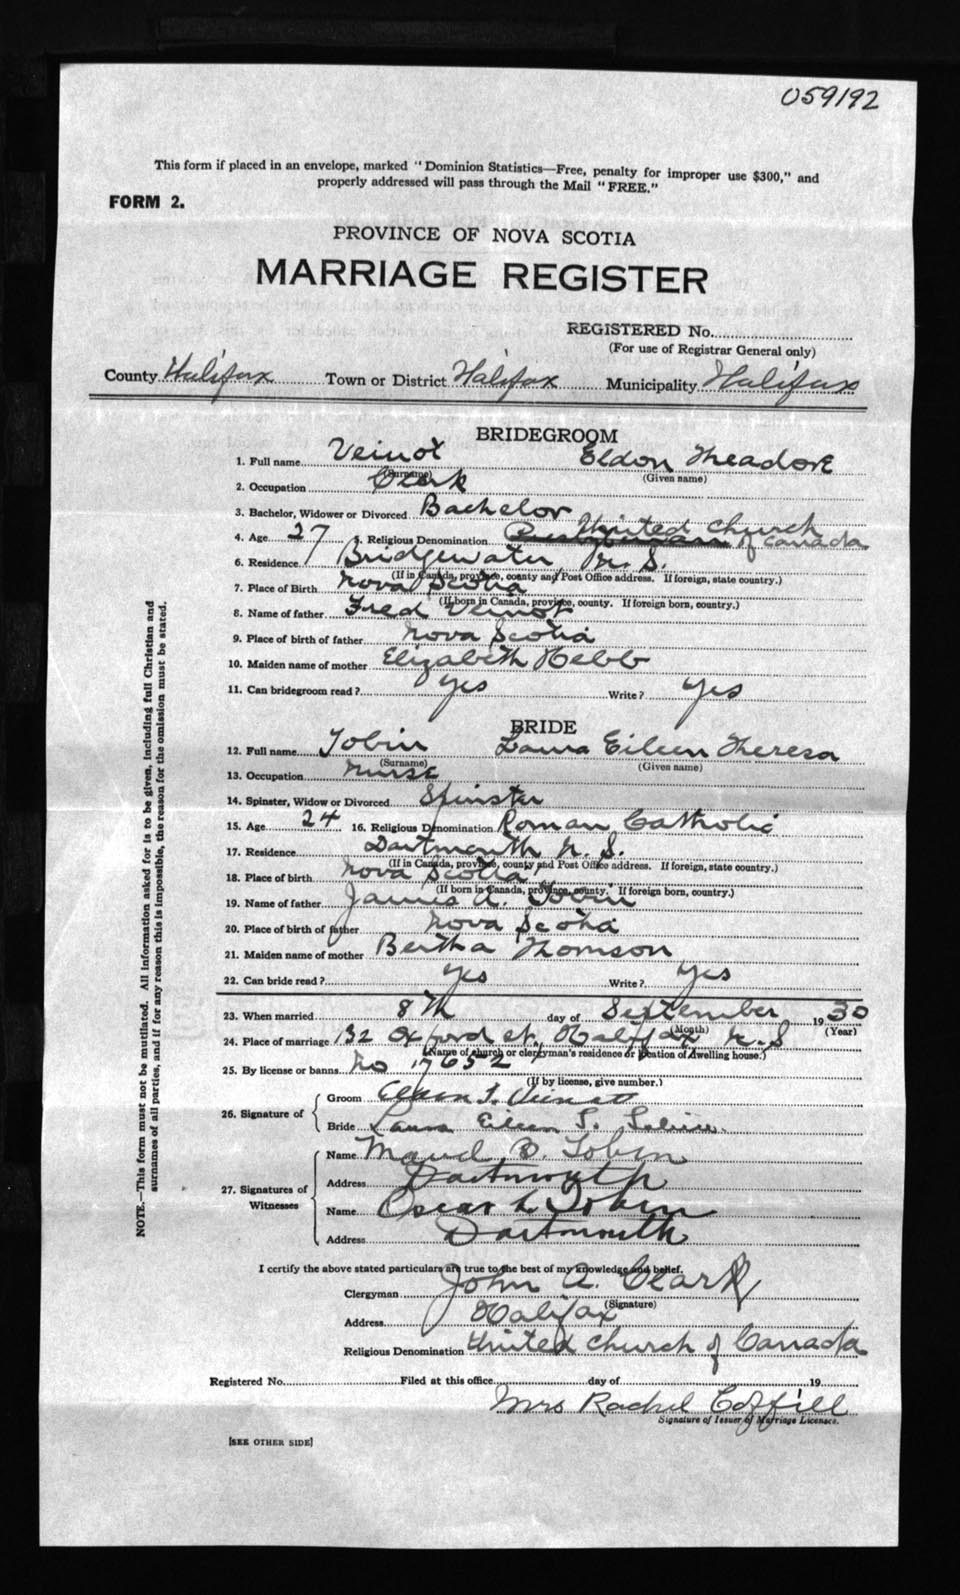 059192
This form if placed in an envelope, marked "Dominion Statistics—Free, penalty for improper use $300," and
properly addressed will pass through the Mail "FREE."
FORM 2.
PROVINCE OF NOVA SCOTIA
MARRIAGE REGISTER
REGISTERED No.
(For use of Registrar General only)
County Halifax Town or District Halifax Municipality Halifax
BRIDEGROOM
1. Full name Veinot Eldon Theadore
(Surname) (Given name)
2. Occupation Clerk
3. Bachelor, Widower or Divorced Bachelor
4. Age 27 5. Religious Denomination Presbyterian United Church of Canada
6. Residence Bridgewater N. S.
(If in Canada, province, county and Post Office address. If foreign, state country.)
7. Place of Birth Nova Scotia
(If born in Canada, province, county. If foreign born, country.)
8. Name of father Fred Veinot
9. Place of birth of father Nova Scotia
10. Maiden name of mother Elizabeth Hebb
11. Can bridegroom read? yes Write? yes
BRIDE
12. Full name Tobin Laura Eileen Theresa
(Surname) (Given name)
13. Occupation Nurse
14. Spinster, Widow or Divorced Spinster
15. Age 24 16. Religious Denomination Roman Catholic
17. Residence Dartmouth N. S.
(If in Canada, province, county and Post Office address. If foreign, state country.)
18. Place of birth Nova Scotia
(If born in Canada, province, county. If foreign born, country.)
19. Name of father James A. Tobin
20. Place of birth of father Nova Scotia
21. Maiden name of mother Bertha Thomson
22. Can bride read? yes Write? yes
23. When married 8th day of September 1930
(Month) (Year)
24. Place of marriage 132 Oxford st., Halifax N. S
(Name of church or clergyman's residence or location of dwelling house.)
25. By license or banns No 17652
(If by license, give number.)
26. Signature of
Groom T.
Bride Laura Eileen T. Tobin.
27. Signatures of Witnesses
Name Maud B. Tobin
Address Dartmouth
Name Oscar L Tobin
Address Dartmouth
I certify the above stated particulars are true to the best of my knowledge and belief.
Clergyman John A. Clark
(Signature)
Address Halifax
Religious Denomination United Church of Canada
Registered No. Filed at this office day of 19
Mrs Rachel Coffill
Signature of Issuer of Marriage Licenses.
[SEE OTHER SIDE]
NOTE.—This form must not be mutilated. All information asked for is to be given, including full Christian and
surnames of all parties, and if for any reason this is impossible, the reason for the omission must be stated.